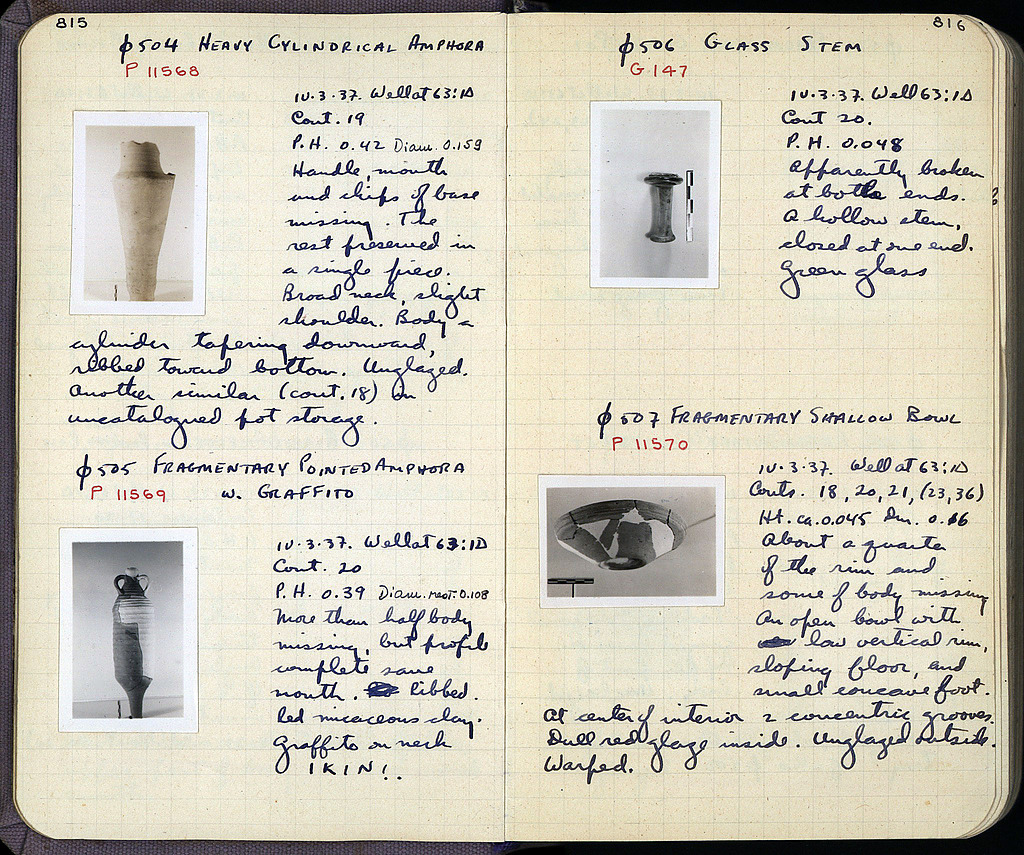 815
φ504 HEAVY CYLINDRICAL AMPHORA
P 11568
10.3.37. Well at 63:ΙΔ
Cont. 19
P.H. 0.42 Diam. 0.159
Handle, mouth
and chips of base
missing. The
rest preserved in
a single piece.
Broad neck, slight
shoulder. Body a
cylinder tapering downward,
ribbed toward bottom. Unglazed.
Another similar (cont. 18) in
uncatalogued pot storage.
φ505 FRAGMENTARY POINTED AMPHORA
P 11569 w. GRAFFITO
10.3.37. Well at 63:ΙΔ
Cont. 20
P.H. 0.39 Diam. rest. 0.108
More than half body
missing, but profile
complete save
mouth. Ribbed.
Red micaceous clay.
Graffito on neck
IKIN!.
816
φ506 GLASS STEM
G 147
10.3.37. Well 63:ΙΔ
Cont 20.
P.H. 0.048
Apparently broken
at both ends. ?
A hollow stem,
closed at one end.
Green glass
φ507 FRAGMENTARY SHALLOW BOWL
P 11570
10.3.37. Well at 63:ΙΔ
Conts. 18, 20, 21, (23, 36)
Ht. ca. 0.045 Dm. 0.16
About a quarter
of the rim and
some of body missing
An open bowl with
low vertical rim,
sloping floor, and
small concave foot.
At center of interior 2 concentric grooves.
Dull red glaze inside. Unglazed outside.
Warped.